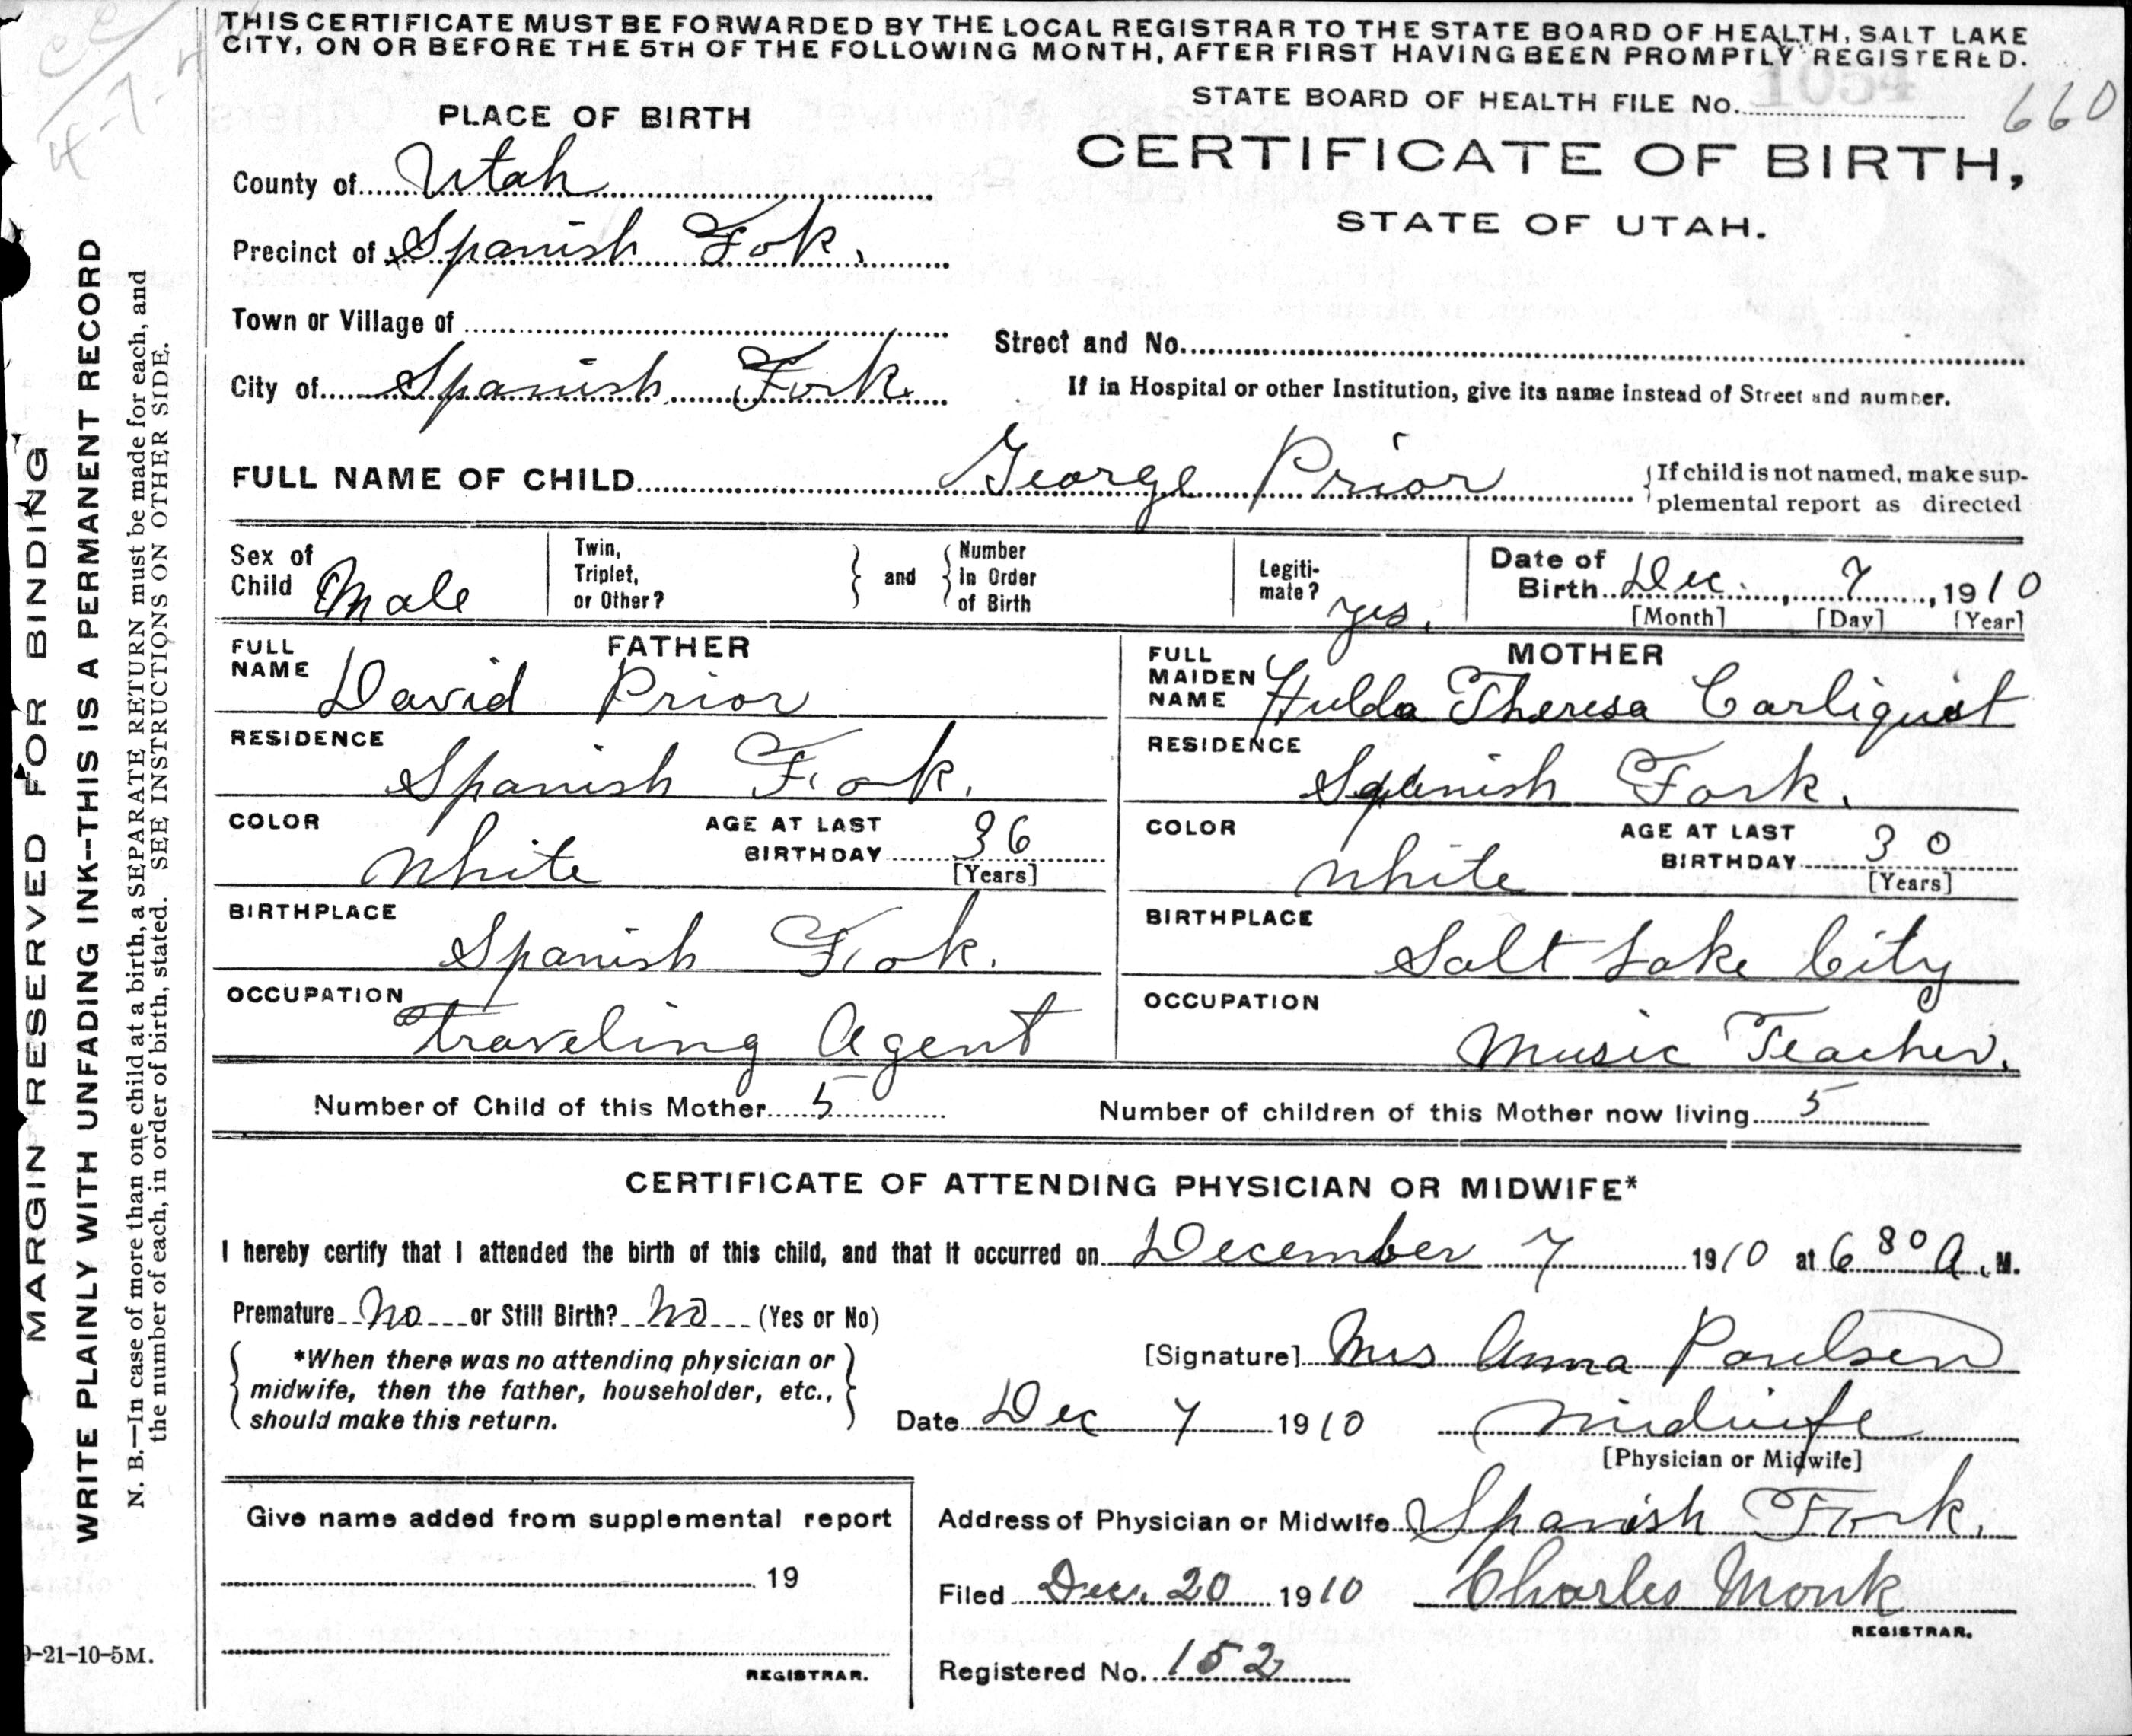 THIS CERTIFICATE MUST BE FORWARDED BY THE LOCAL REGISTRAR TO THE STATE BOARD OF HEALTH, SALT LAKE
CITY, ON OR BEFORE THE 5TH OF THE FOLLOWING MONTH, AFTER FIRST HAVING BEEN PROMPTLY REGISTERED.
STATE BOARD OF HEALTH FILE No. 1054
660
PLACE OF BIRTH
CERTIFICATE OF BIRTH,
STATE OF UTAH.
County of Utah
Precinct of Spanish Fok.
Town or Village of
Street and No.
City of Spanish Fork
If in Hospital or other Institution, give its name instead of Street and number.
FULL NAME OF CHILD George Prior
{If child is not named, make sup-
plemental report as directed
Sex of Child Male
Twin, Triplet, or Other?
and
Number in Order of Birth
Legiti-mate? yes.
Date of Birth Dec. 7, 1910
[Month] [Day] [Year]
FATHER
FULL NAME David Prior
RESIDENCE
Spanish Fok.
COLOR White
AGE AT LAST BIRTHDAY 36
[Years]
BIRTHPLACE
Spanish Fok.
OCCUPATION
Traveling Agent
MOTHER
FULL MAIDEN NAME Hulda Theresa Carliquist
RESIDENCE
Spanish Fork.
COLOR White
AGE AT LAST BIRTHDAY 30
[Years]
BIRTHPLACE
Salt Lake City
OCCUPATION
Music Teacher.
Number of Child of this Mother 5
Number of children of this Mother now living 5
CERTIFICATE OF ATTENDING PHYSICIAN OR MIDWIFE*
I hereby certify that I attended the birth of this child, and that it occurred on December 7 1910 at 6 30 A. M.
Premature No or Still Birth? No (Yes or No)
*When there was no attending physician or
midwife, then the father, householder, etc.,
should make this return.
[Signature] Mrs Anna Poulsen
Date Dec 7 1910
midwife
[Physician or Midwife]
Give name added from supplemental report
19
REGISTRAR.
Address of Physician or Midwife Spanish Fork.
Filed Dec. 20 1910 Charles Monk
REGISTRAR.
Registered No. 152
MARGIN RESERVED FOR BINDING
WRITE PLAINLY WITH UNFADING INK--THIS IS A PERMANENT RECORD
N. B.—In case of more than one child at a birth, a SEPARATE RETURN must be made for each, and
the number of each, in order of birth, stated. SEE INSTRUCTIONS ON OTHER SIDE.
9-21-10-5M.